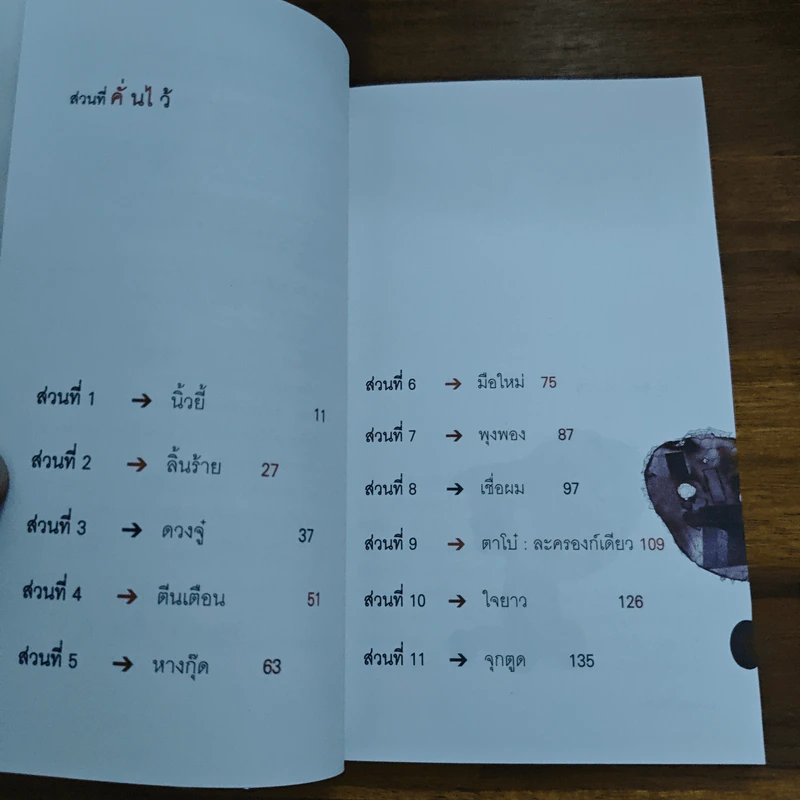 ส่วนที่ คั่นไว้
ส่วนที่ 1 → นิ้วยี้ 11
ส่วนที่ 2 → ลิ้นร้าย 27
ส่วนที่ 3 → ดวงจู๋ 37
ส่วนที่ 4 → ตีนเตือน 51
ส่วนที่ 5 → หางกุ๊ด 63
ส่วนที่ 6 → มือใหม่ 75
ส่วนที่ 7 → พุงพอง 87
ส่วนที่ 8 → เชื่อผม 97
ส่วนที่ 9 → ตาโบ๋ : ละครองก์เดียว 109
ส่วนที่ 10 → ใจยาว 126
ส่วนที่ 11 → จุกตูด 135